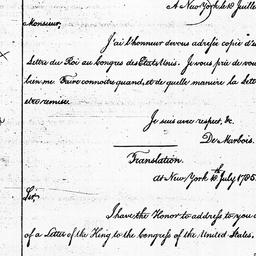 A New York le 10 Juille
Monsieur,
J'ai l'honneur de vous adresser copie d'u
Lettre du Roi au Congres des Etats Unis. Je vous prie de vou
bien me faire connoitre quand, et de quelle manière la Lett
etre remise.
Je suis avec respect, &c.
De Marbois.
Translation.
At New York 10th July 1785.
Sir,
I have the Honor to address to you a
of a Letter of the King to the Congress of the United States.